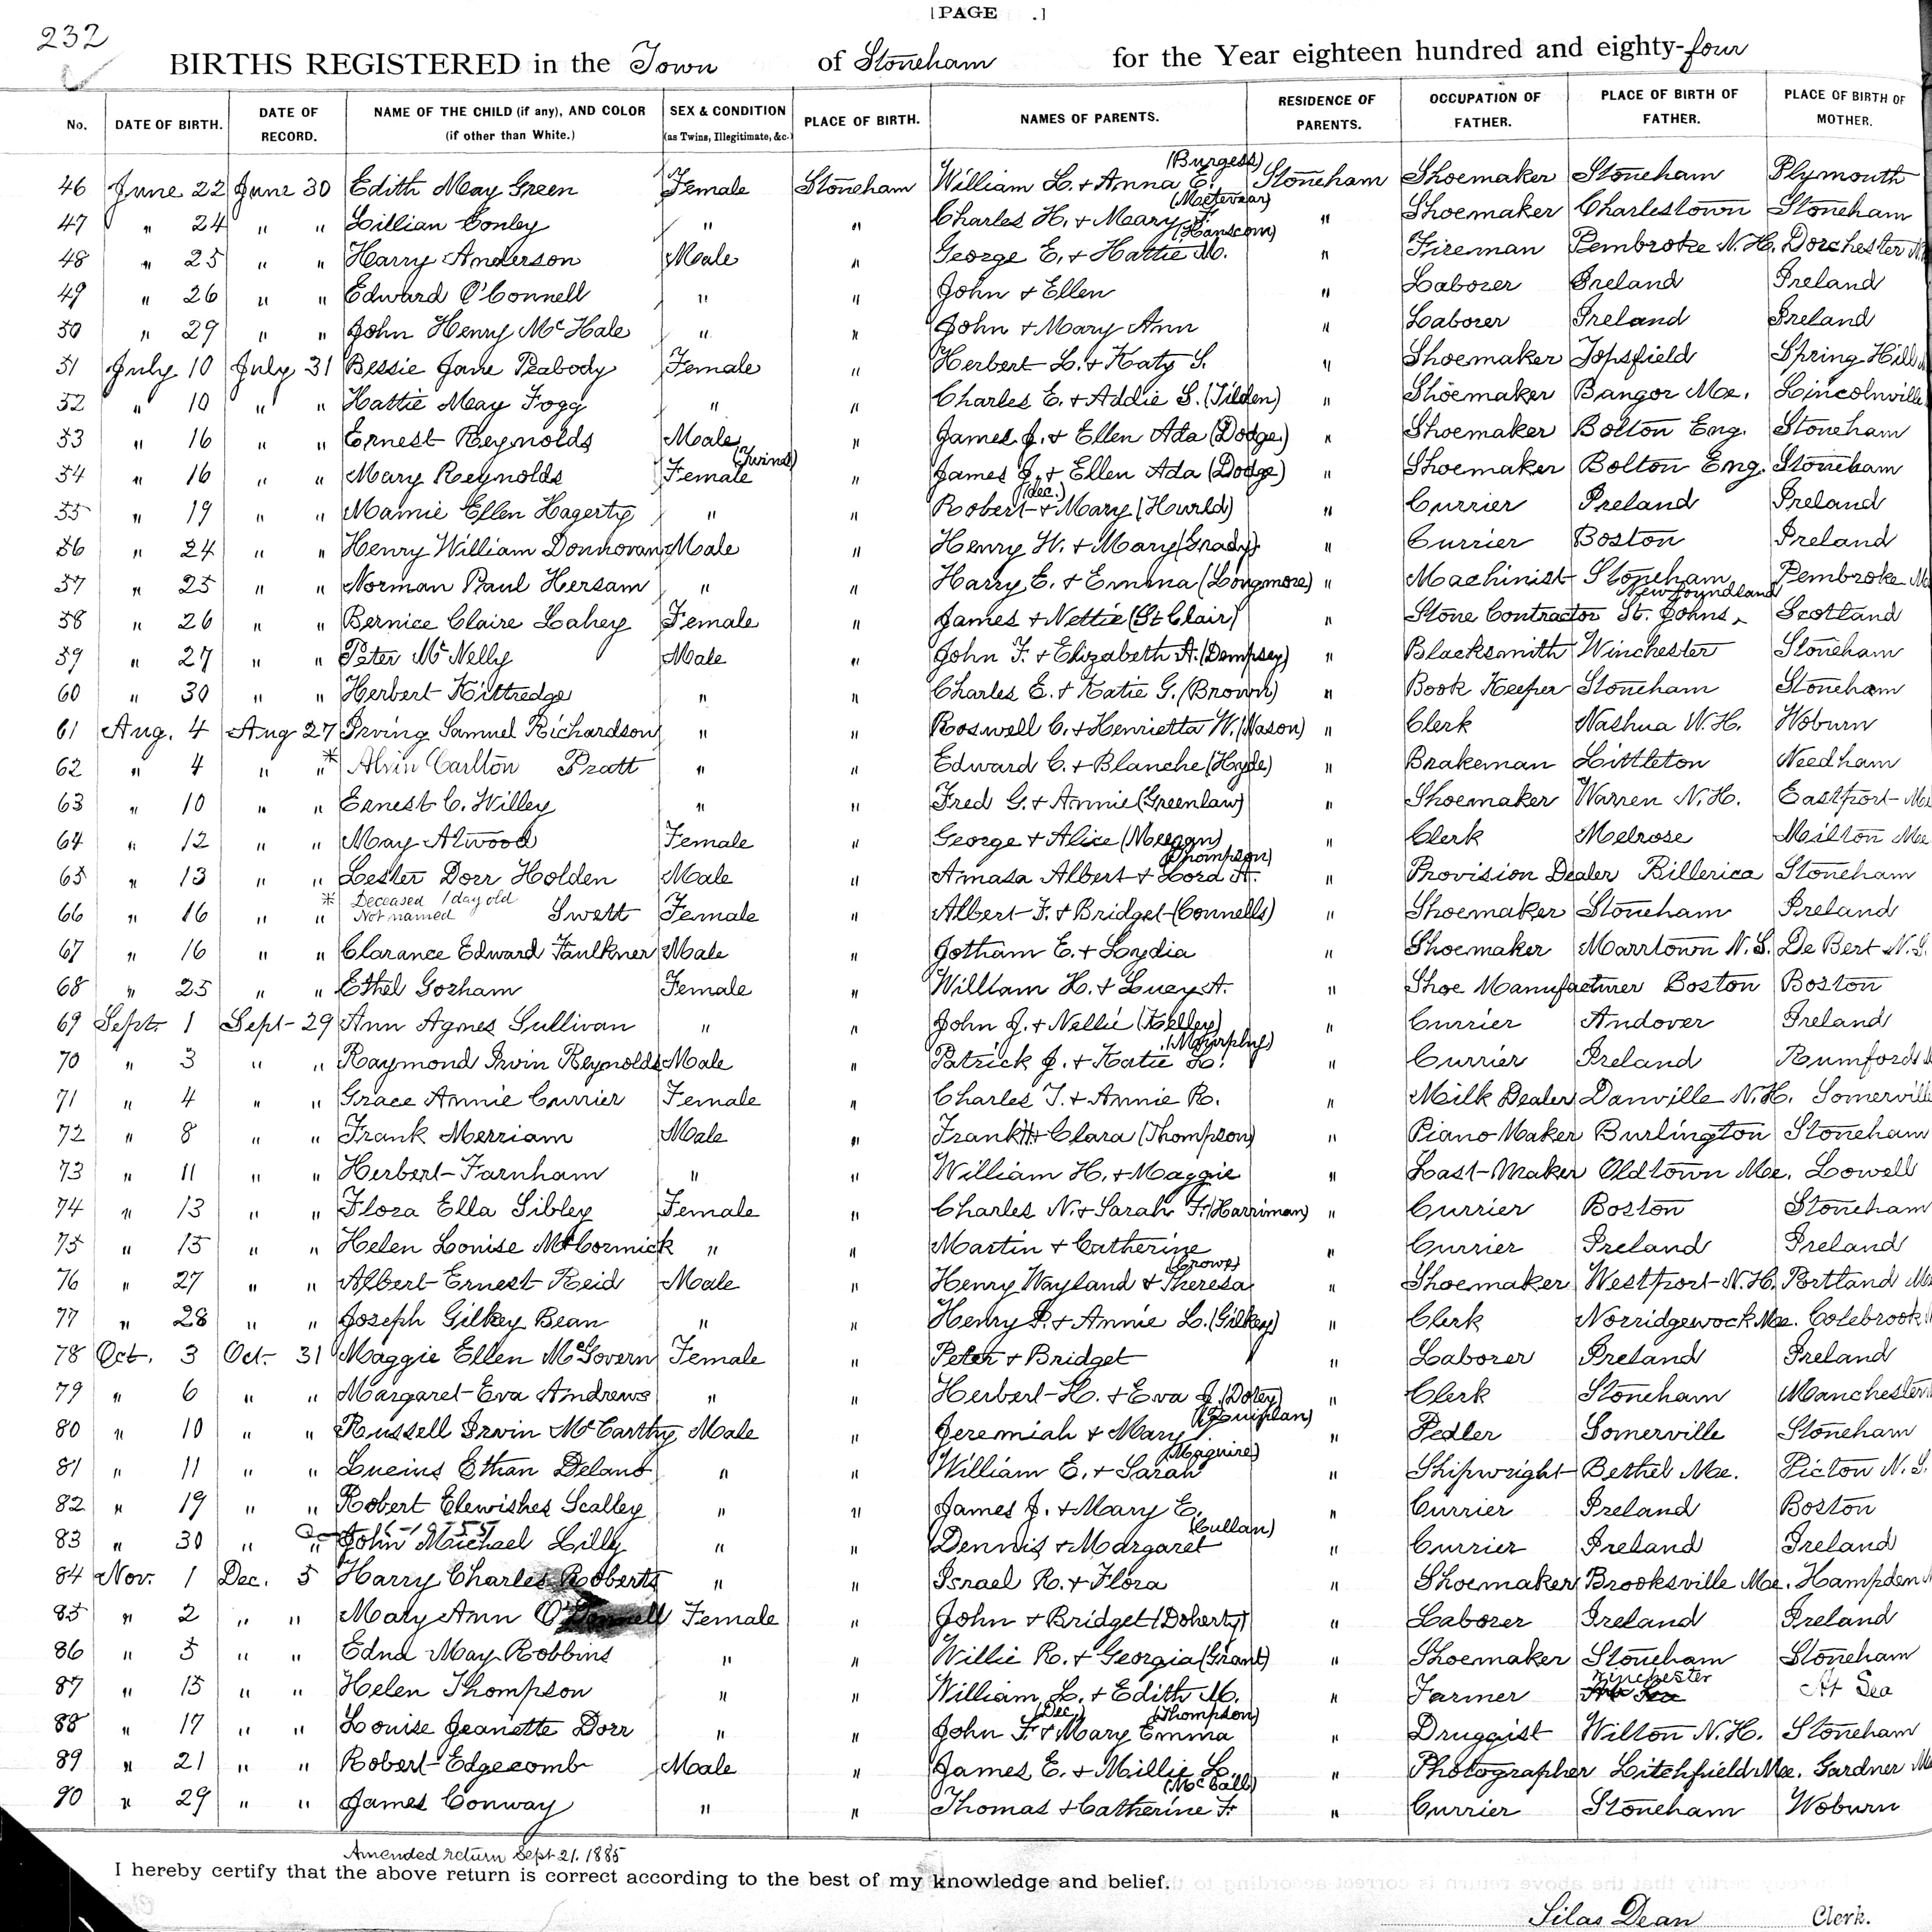 [PAGE .]
232
BIRTHS REGISTERED in the Town of Stoneham for the Year eighteen hundred and eighty-four
No. DATE OF BIRTH. DATE OF RECORD. NAME OF THE CHILD (if any), AND COLOR (if other than White.) SEX & CONDITION (as Twins, Illegitimate, &c.) PLACE OF BIRTH. NAMES OF PARENTS. RESIDENCE OF PARENTS. OCCUPATION OF FATHER. PLACE OF BIRTH OF FATHER. PLACE OF BIRTH OF MOTHER.
46 June 22 June 30 Edith May Green Female Stoneham William L. + Anna E. (Burgess) Stoneham Shoemaker Stoneham Plymouth
47 " 24 " " Lillian Conley " " Charles H. + Mary F. " Shoemaker Charlestown Stoneham
48 " 25 " " Harry Anderson Male " George E. + Hattie M. (Hanscom) " Fireman Pembroke N.H. Dorchester
49 " 26 " " Edward O'Connell " " John + Ellen " Laborer Ireland Ireland
50 " 29 " " John Henry McHale " " John + Mary Ann " Laborer Ireland Ireland
51 July 10 July 31 Bessie Jane Peabody Female " Herbert L. + Katy S. " Shoemaker Topsfield Spring Hill
52 " 10 " " Hattie May Fogg " " Charles E. + Addie S. (Tilden) " Shoemaker Bangor Me. Lincolnville
53 " 16 " " Ernest Reynolds Male " James J. + Ellen Ada (Dodge) " Shoemaker Bolton Eng. Stoneham
54 " 16 " " Mary Reynolds Female (Twins) " James J. + Ellen Ada (Dodge) " Shoemaker Bolton Eng. Stoneham
55 " 19 " " Mamie Ellen Hagerty " " Robert (dec.) + Mary (Hurld) " Currier Ireland Ireland
56 " 24 " " Henry William Donnovan Male " Henry W. + Mary (Grady) " Currier Boston Ireland
57 " 25 " " Norman Paul Hersam " " Harry E. + Emma (Longmore) " Machinist Stoneham Pembroke
58 " 26 " " Bernice Claire Lahey Female " James + Nettie (St Clair) " Stone Contractor St. Johns, Newfoundland Scotland
59 " 27 " " Peter McNelly Male " John F. + Elizabeth A. (Dempsey) " Blacksmith Winchester Stoneham
60 " 30 " " Herbert Kittredge " " Charles E. + Katie G. (Brown) " Book Keeper Stoneham Stoneham
61 Aug. 4 Aug 27 Irving Samuel Richardson " " Roswell C. + Henrietta W. (Nason) " Clerk Nashua N.H. Woburn
62 " 4 " " * Alvin Carlton Pratt " " Edward C. + Blanche (Hyde) " Brakeman Littleton Needham
63 " 10 " " Ernest C. Willey " " Fred G. + Annie (Greenlaw) " Shoemaker Warren N.H. Eastport Me
64 " 12 " " May Atwood Female " George + Alice " Clerk Melrose Milton Me
65 " 13 " " Lester Dorr Holden Male " Amasa Albert + Lord A. (Thompson) " Provision Dealer Billerica Stoneham
66 " 16 " " * Deceased 1 day old Not named Swett Female " Albert F. + Bridget (Connells) " Shoemaker Stoneham Ireland
67 " 16 " " Clarance Edward Faulkner Male " Jotham E. + Lydia " Shoemaker Marrtown N.S. De Bert N.S.
68 " 25 " " Ethel Gorham Female " William H. + Lucy A. " Shoe Manufacturer Boston Boston
69 Sept. 1 Sept 29 Ann Agnes Sullivan " " John J. + Nellie (Kelley) " Currier Andover Ireland
70 " 3 " " Raymond Irvin Reynolds Male " Patrick J. + Katie L. (Mourphy) " Currier Ireland Rumford
71 " 4 " " Grace Annie Currier Female " Charles T. + Annie R. " Milk Dealer Danville N.H. Somerville
72 " 8 " " Frank Merriam Male " Frank H. + Clara (Thompson) " Piano Maker Burlington Stoneham
73 " 11 " " Herbert Farnham " " William H. + Maggie " Last-Maker Oldtown Me. Lowell
74 " 13 " " Flora Ella Sibley Female " Charles N. + Sarah F. (Harriman) " Currier Boston Stoneham
75 " 15 " " Helen Louise McCormick " " Martin + Catherine " Currier Ireland Ireland
76 " 27 " " Albert Ernest Reid Male " Henry Wayland + Theresa (Crowe) " Shoemaker Westport N.H. Portland Me
77 " 28 " " Joseph Gilkey Bean " " Henry P. + Annie L. (Gilkey) " Clerk Norridgewock Me. Colebrook
78 Oct. 3 Oct. 31 Maggie Ellen McGovern Female " Peter + Bridget " Laborer Ireland Ireland
79 " 6 " " Margaret Eva Andrews " " Herbert H. + Eva J. (Doley) " Clerk Stoneham Manchester
80 " 10 " " Russell Irvin McCarthy Male " Jeremiah + Mary (Quinlan) " Pedler Somerville Stoneham
81 " 11 " " Lucius Ethan Delano " " William E. + Sarah (Maguire) " Shipwright Bethel Me. Picton N.S.
82 " 19 " " Robert Elewishes Scalley " " James J. + Mary E. " Currier Ireland Boston
83 " 30 " " John Michael Lilly " " Dennis + Margaret (Cullan) " Currier Ireland Ireland
84 Nov. 1 Dec. 5 Harry Charles Roberts " " Israel R. + Flora " Shoemaker Brooksville Me. Hampden
85 " 2 " " Mary Ann O'Donnell Female " John + Bridget (Doherty) " Laborer Ireland Ireland
86 " 5 " " Edna May Robbins " " Willie R. + Georgia (Grant) " Shoemaker Stoneham Stoneham
87 " 15 " " Helen Thompson " " William L. + Edith M. " Farmer Winchester At Sea
88 " 17 " " Louise Jeanette Dorr " " John F. (Dec.) + Mary Emma (Thompson) " Druggist Wilton N.H. Stoneham
89 " 21 " " Robert Edgecomb Male " James E. + Millie L. " Photographer Litchfield Me. Gardner Me
90 " 29 " " James Conway " " Thomas + Catherine F. (McCall) " Currier Stoneham Woburn
Amended return Sept 21. 1885
I hereby certify that the above return is correct according to the best of my knowledge and belief.
Silas Dean Clerk.